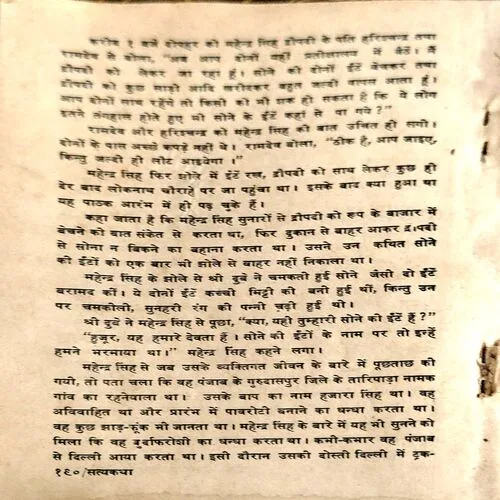 करीब १ बजे दोपहर को महेन्द्र सिंह द्रौपदी के पति हरिश्चन्द्र तथा
रामदेव से बोला, "अब आप दोनों यहीं प्रतीक्षालय में बैठें। मैं
द्रौपदी को लेकर जा रहा हूं। सोने की दोनों ईंटें बेचकर तथा
द्रौपदी को कुछ साड़ी आदि खरीदकर बहुत जल्दी वापस आता हूं।
आप दोनों साथ रहेंगे तो किसी को भी शक हो सकता है कि ये लोग
इतने तंगहाल होते हुए भी सोने के ईंटें कहां से पा गये ?"
रामदेव और हरिश्चन्द्र को महेन्द्र सिंह की बात उचित ही लगी।
दोनों के पास अच्छे कपड़े नहीं थे। रामदेव बोला, "ठीक है, आप जाइए,
किन्तु जल्दी ही लौट आइयेगा ।"
महेन्द्र सिंह फिर झोले में ईंटें रख, द्रौपदी को साथ लेकर कुछ ही
देर बाद लोकनाथ चौराहे पर जा पहुंचा था। इसके बाद क्या हुआ था
यह पाठक आरंभ में ही पढ़ चुके हैं।
कहा जाता है कि महेन्द्र सिंह सुनारों से द्रौपदी को रूप के बाजार में
बेचने की बात संकेत से करता था, फिर दुकान से बाहर आकर द्रौपदी
से सोना न बिकने का बहाना करता था। उसने उन कथित सोने
की ईंटों को एक बार भी झोले से बाहर नहीं निकाला था।
महेन्द्र सिंह के झोले से श्री दुबे ने चमकती हुई सोने जैसी दो ईंटें
बरामद कीं। ये दोनों ईंटें कच्ची मिट्टी की बनी हुई थीं, किन्तु उन
पर चमकीली, सुनहरी रंग की पन्नी चढ़ी हुई थी।
श्री दुबे ने महेन्द्र सिंह से पूछा, "क्या, यही तुम्हारी सोने की ईंटें हैं ?"
"हुजूर, यह हमारे देवता हैं । सोने की ईंटों के नाम पर तो इन्हें
हमने भरमाया था।" महेन्द्र सिंह कहने लगा।
महेन्द्र सिंह से जब उसके व्यक्तिगत जीवन के बारे में पूछताछ की
गयी, तो पता चला कि वह पंजाब के गुरुदासपुर जिले के तारिपाड़ा नामक
गांव का रहनेवाला था। उसके बाप का नाम हजारा सिंह था। वह
अविवाहित था और प्रारंभ में पावरोटी बनाने का धन्धा करता था।
वह कुछ झाड़-फूंक भी जानता था। महेन्द्र सिंह के बारे में यह भी सुनने को
मिला कि वह बुर्दाफरोशी का धन्धा करता था। कभी-कभार वह पंजाब
से दिल्ली आया करता था। इसी दौरान उसकी दोस्ती दिल्ली में ट्रक-
१९०/सत्यकथा